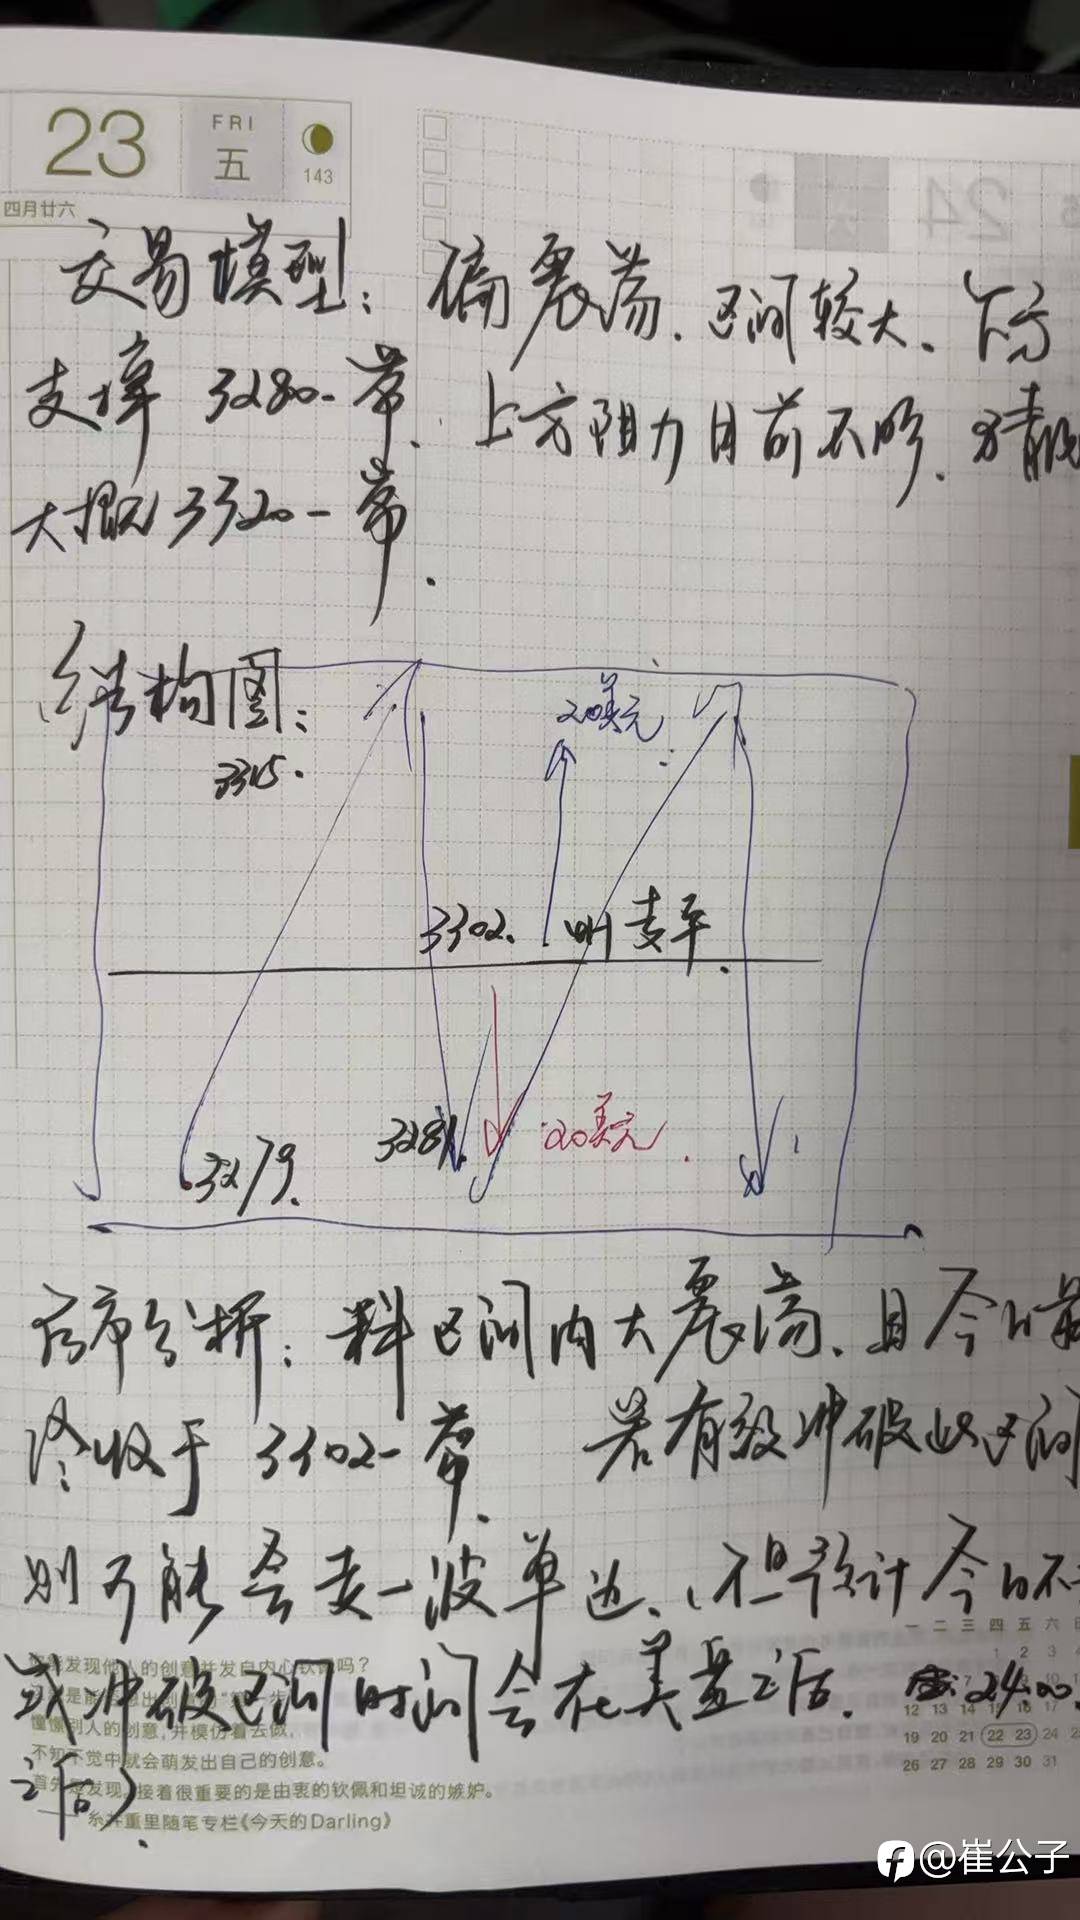 23
FRI
五
143
四月廿六
24
交易模型：偏震荡．区间较大．下方
支撑 3280一带．上方阻力目前不明．猜测
大概3320一带．
结构图：
3315.
20美元
3302. 4H支平.
3279.
328
20美元.
后市分析：料区间内大震荡．且今日最
终收于3302一带．若有效冲破此区间
则可能会走一波单边．（但预计今日不
或冲破区间时间会在美盘之后．24:00.
之后）．
发现他人的创意并发自内心钦佩吗？
憧憬别人的创意，并模仿着去做，
不知不觉中就会萌发出自己的创意。
首先是发现，接着很重要的是由衷的钦佩和坦诚的嫉妒。
糸井重里随笔专栏《今天的Darling》
一 二 三 四 五 六
1 2 3
12 13 14 15 16 17
19 20 21 22 23 24
26 27 28 29 30 31
@崔公子